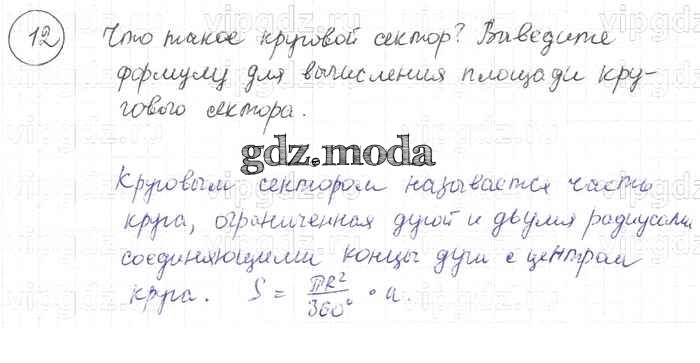 12 Что такое круговой сектор? Выведите
формулу для вычисления площади кру-
гового сектора.
gdz.moda
Круговым сектором называется часть
круга, ограниченная дугой и двумя радиусами
соединяющими концы дуги с центром
круга. S = πR²/360° · α.